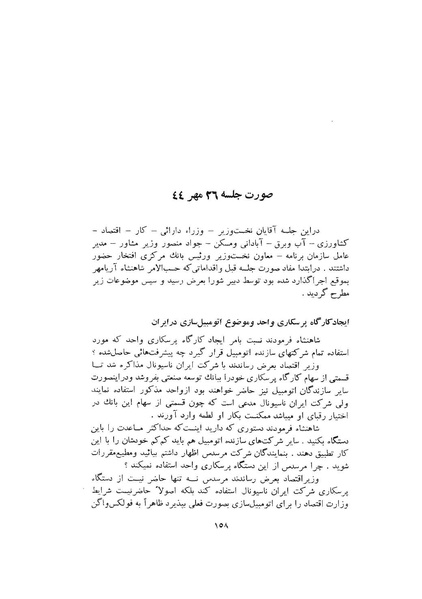 صورت جلسهٔ ۲۶ مهر ۴۴
دراین جلسه آقایان نخست‌وزیر – وزراء دارائی – کار – اقتصاد –
کشاورزی – آب وبرق – آبادانی ومسکن – جواد منصور وزیر مشاور – مدیر
عامل سازمان برنامه – معاون نخست‌وزیر ورئیس بانک مرکزی افتخار حضور
داشتند . درابتدا مفاد صورت جلسه قبل واقداماتی‌که حسب‌الامر شاهنشاه آریامهر
بموقع اجراگذارد شده بود توسط دبیر شورا بعرض رسید و سپس موضوعات زیر
مطرح گردید .
ایجادکارگاه پرسکاری واحد وموضوع اتومبیل‌سازی درایران
شاهنشاه فرمودند نسبت بامر ایجاد کارگاه پرسکاری واحد که مورد
استفاده تمام شرکتهای سازنده اتومبیل قرار گیرد چه پیشرفت‌هائی حاصل‌شده ؟
وزیر اقتصاد بعرض رساندند با شرکت ایران ناسیونال مذاکره شد تا
قسمتی از سهام کارگاه پرسکاری خودرا ببانک توسعه صنعتی بفروشد ودراینصورت
سایر سازندگان اتومبیل نیز حاضر خواهند بود ازواحد مذکور استفاده نمایند
ولی شرکت ایران ناسیونال مدعی است که چون قسمتی از سهام این بانک در
اختیار رقبای او میباشد ممکنست بکار او لطمه وارد آورند .
شاهنشاه فرمودند دستوری که دارید اینست‌که حداکثر مساعدت را باین
دستگاه بکنید . سایر شرکت‌های سازنده اتومبیل هم باید کم‌کم خودشان را با این
کار تطبیق دهند . بنمایندگان شرکت مرسدس اظهار داشتم بیائید ومطیع‌مقررات
شوید . چرا مرسدس از این دستگاه پرسکاری واحد استفاده نمیکند ؟
وزیراقتصاد بعرض رساندند مرسدس نه تنها حاضر نیست از دستگاه
پرسکاری شرکت ایران ناسیونال استفاده کند بلکه اصولاً حاضرنیست شرایط
وزارت اقتصاد را برای اتومبیل‌سازی بصورت فعلی بپذیرد ظاهراً به فولکس‌واگن
۱۵۸